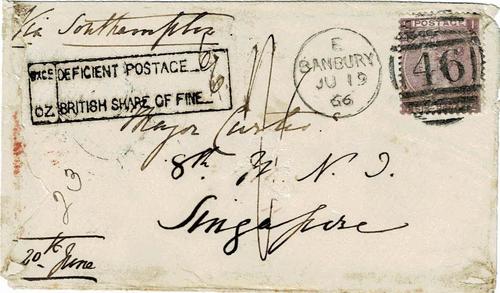 Via Southampton
EXCE DEFICIENT POSTAGE
OZ BRITISH SHARE OF FINE
6
E
BANBURY
JU 19
66
C
POSTAGE
I
46
Major
8th N. I.
Singapore
23
20th June